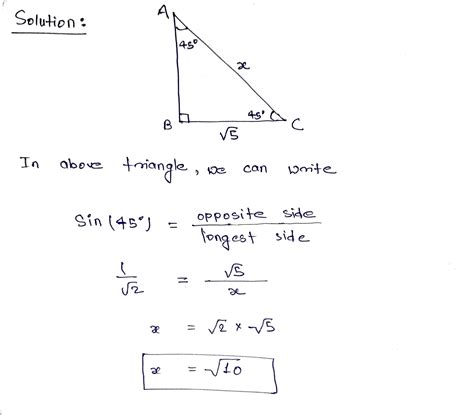 Solution:
A
45°
x
45°
B
C
√5
In above triangle, we can write
Sin (45°) = opposite side / longest side
1/√2 = √5/x
x = √2 × √5
x = √10